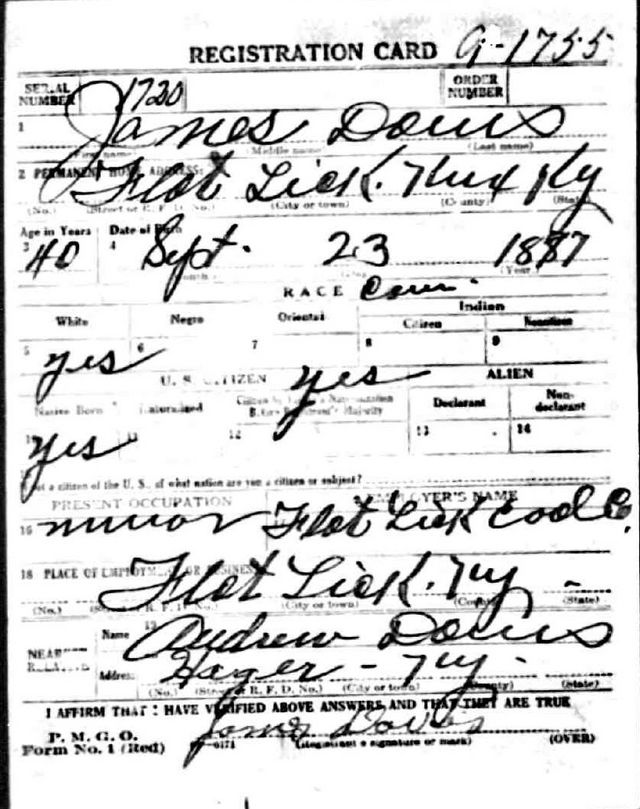 REGISTRATION CARD A-1755
SERIAL NUMBER 1720 ORDER NUMBER
1 James Davis
(First name) (Middle name) (Last name)
2 PERMANENT HOME ADDRESS:
Flat Lick. Knx Ky
(No.) (Street or R. F. D. No.) (City or town) (County) (State)
Age in Years Date of Birth
3 4
40 Sept. 23 1887
(Month) (Day) (Year)
RACE Cau.
White Negro Oriental Indian
Citizen Noncitizen
5 6 7 8 9
yes
U. S. CITIZEN yes ALIEN
Native Born Naturalized Citizen by Father's Naturalization Before Registrant's Majority Declarant Non-declarant
10 11 12 13 14
yes
not a citizen of the U. S., of what nation are you a citizen or subject?
PRESENT OCCUPATION EMPLOYER'S NAME
16 minor Flat Lick Coal Co.
18 PLACE OF EMPLOYMENT OR BUSINESS
Flat Lick. Ky
(No.) (Street or R. F. D. No.) (City or town) (County) (State)
NEAREST RELATIVE
Name 19 Andrew Davis
Address Hager - Ky.
(No.) (Street or R. F. D. No.) (City or town) (County) (State)
I AFFIRM THAT I HAVE VERIFIED ABOVE ANSWERS AND THAT THEY ARE TRUE
P. M. G. O.
Form No. 1 (Red) 3-6171 James Davis
(Registrant's signature or mark) (OVER)